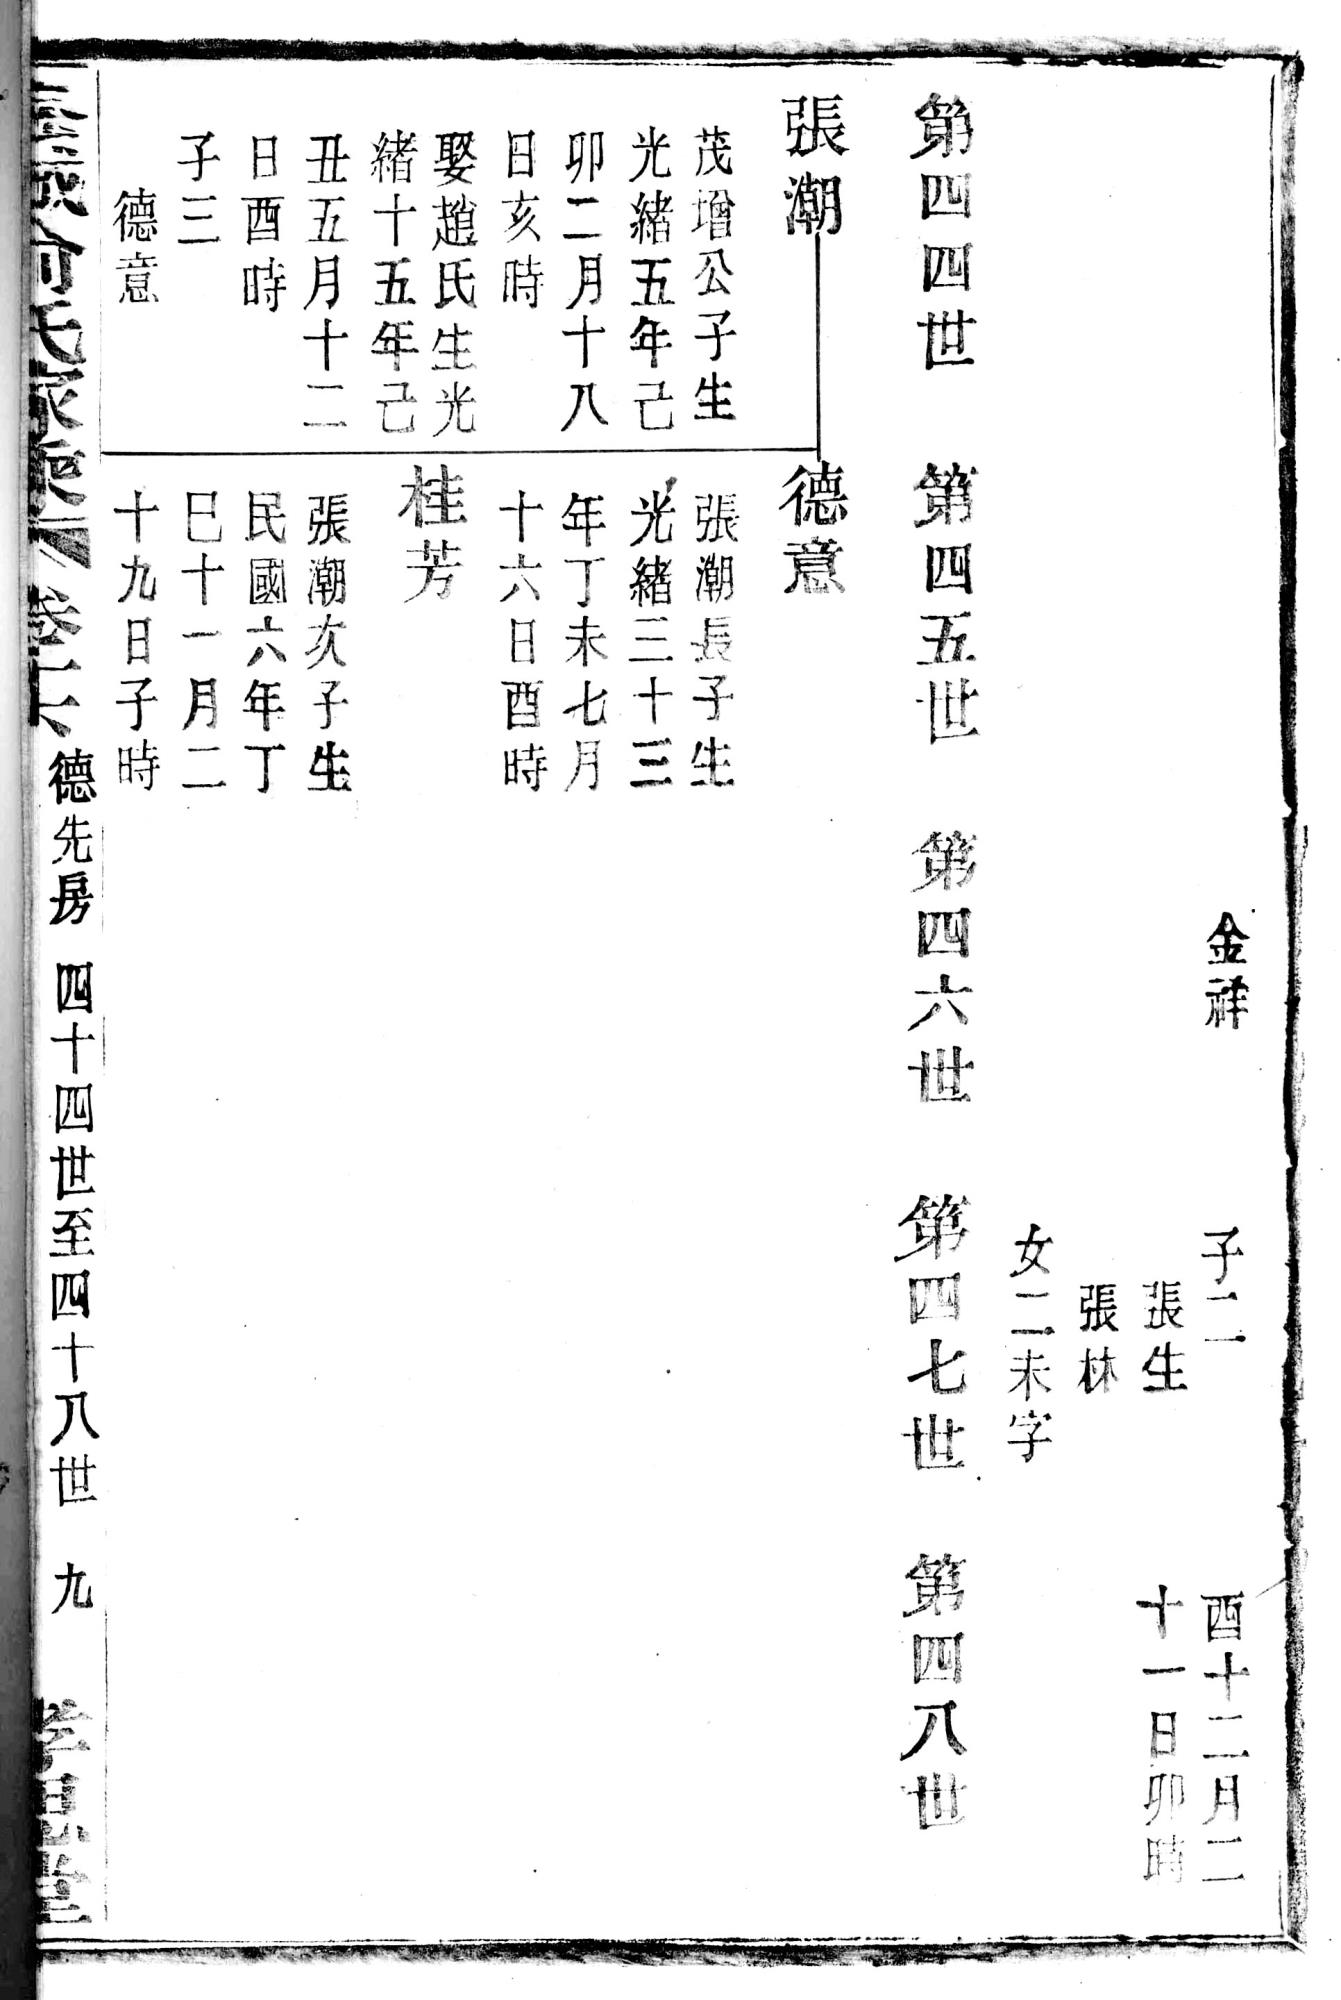 金祥
子二
張生
張林
女二未字
酉十二月二
十一日卯時
第四四世 第四五世 第四六世 第四七世 第四八世
張潮
茂增公子生
光緒五年己
卯二月十八
日亥時
娶趙氏生光
緒十五年己
丑五月十二
日酉時
子三
德意
德意
張潮長子生
光緒三十三
年丁未七月
十六日酉時
桂芳
張潮次子生
民國六年丁
巳十一月二
十九日子時
俞氏家乘 德先房 四十四世至四十八世 九 孝思堂